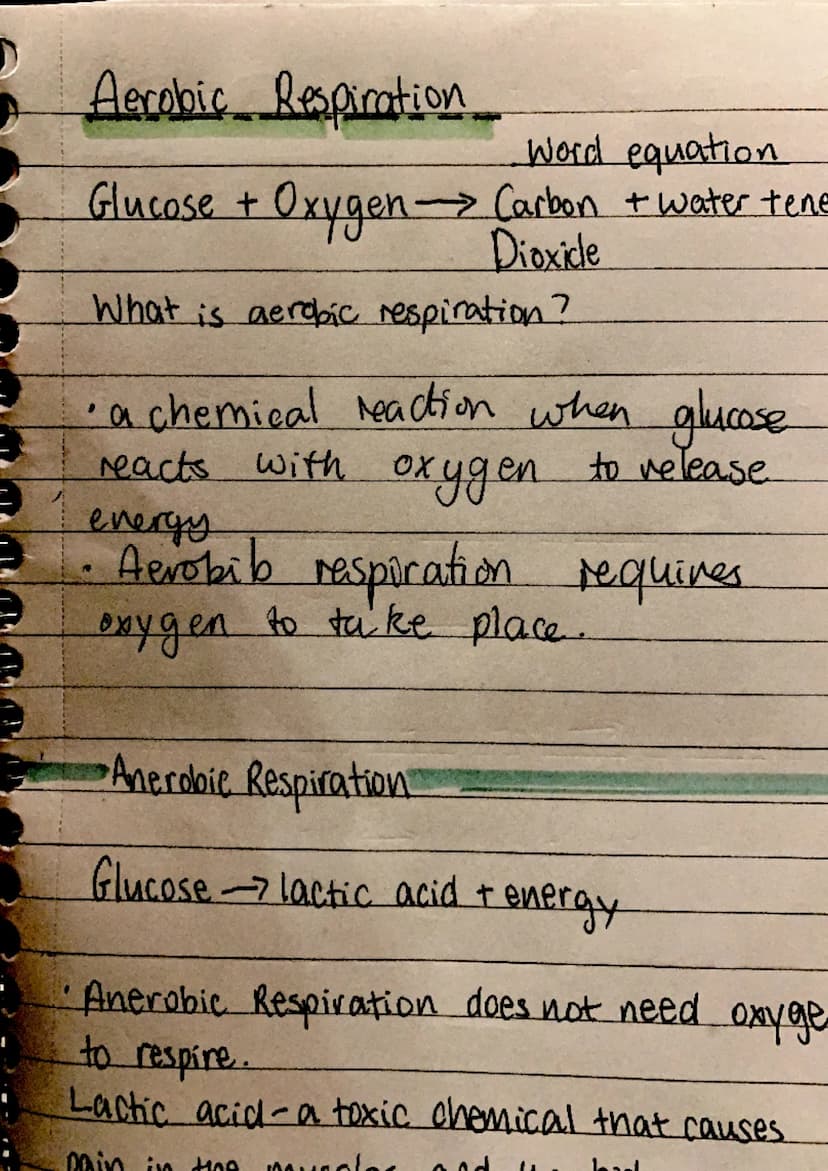 Aerobic Respiration
Word equation
Glucose + Oxygen → Carbon + water + ene
Dioxide
What is aerobic respiration?
• a chemical reaction when glucose
reacts with oxygen to release
energy
• Aerobib respiration requires
oxygen to take place.
Anerobic Respiration
Glucose → lactic acid + energy
• Anerobic Respiration does not need oxyge
to respire.
Lactic acid - a toxic chemical that causes
pain in the muscles and